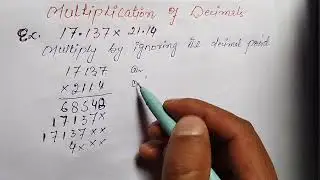 Multiplication of Decimals
Ex. 17.137 × 21.14
Multiply by ignoring the decimal point
17137
×2114
68548
17137×
17137××
4×××